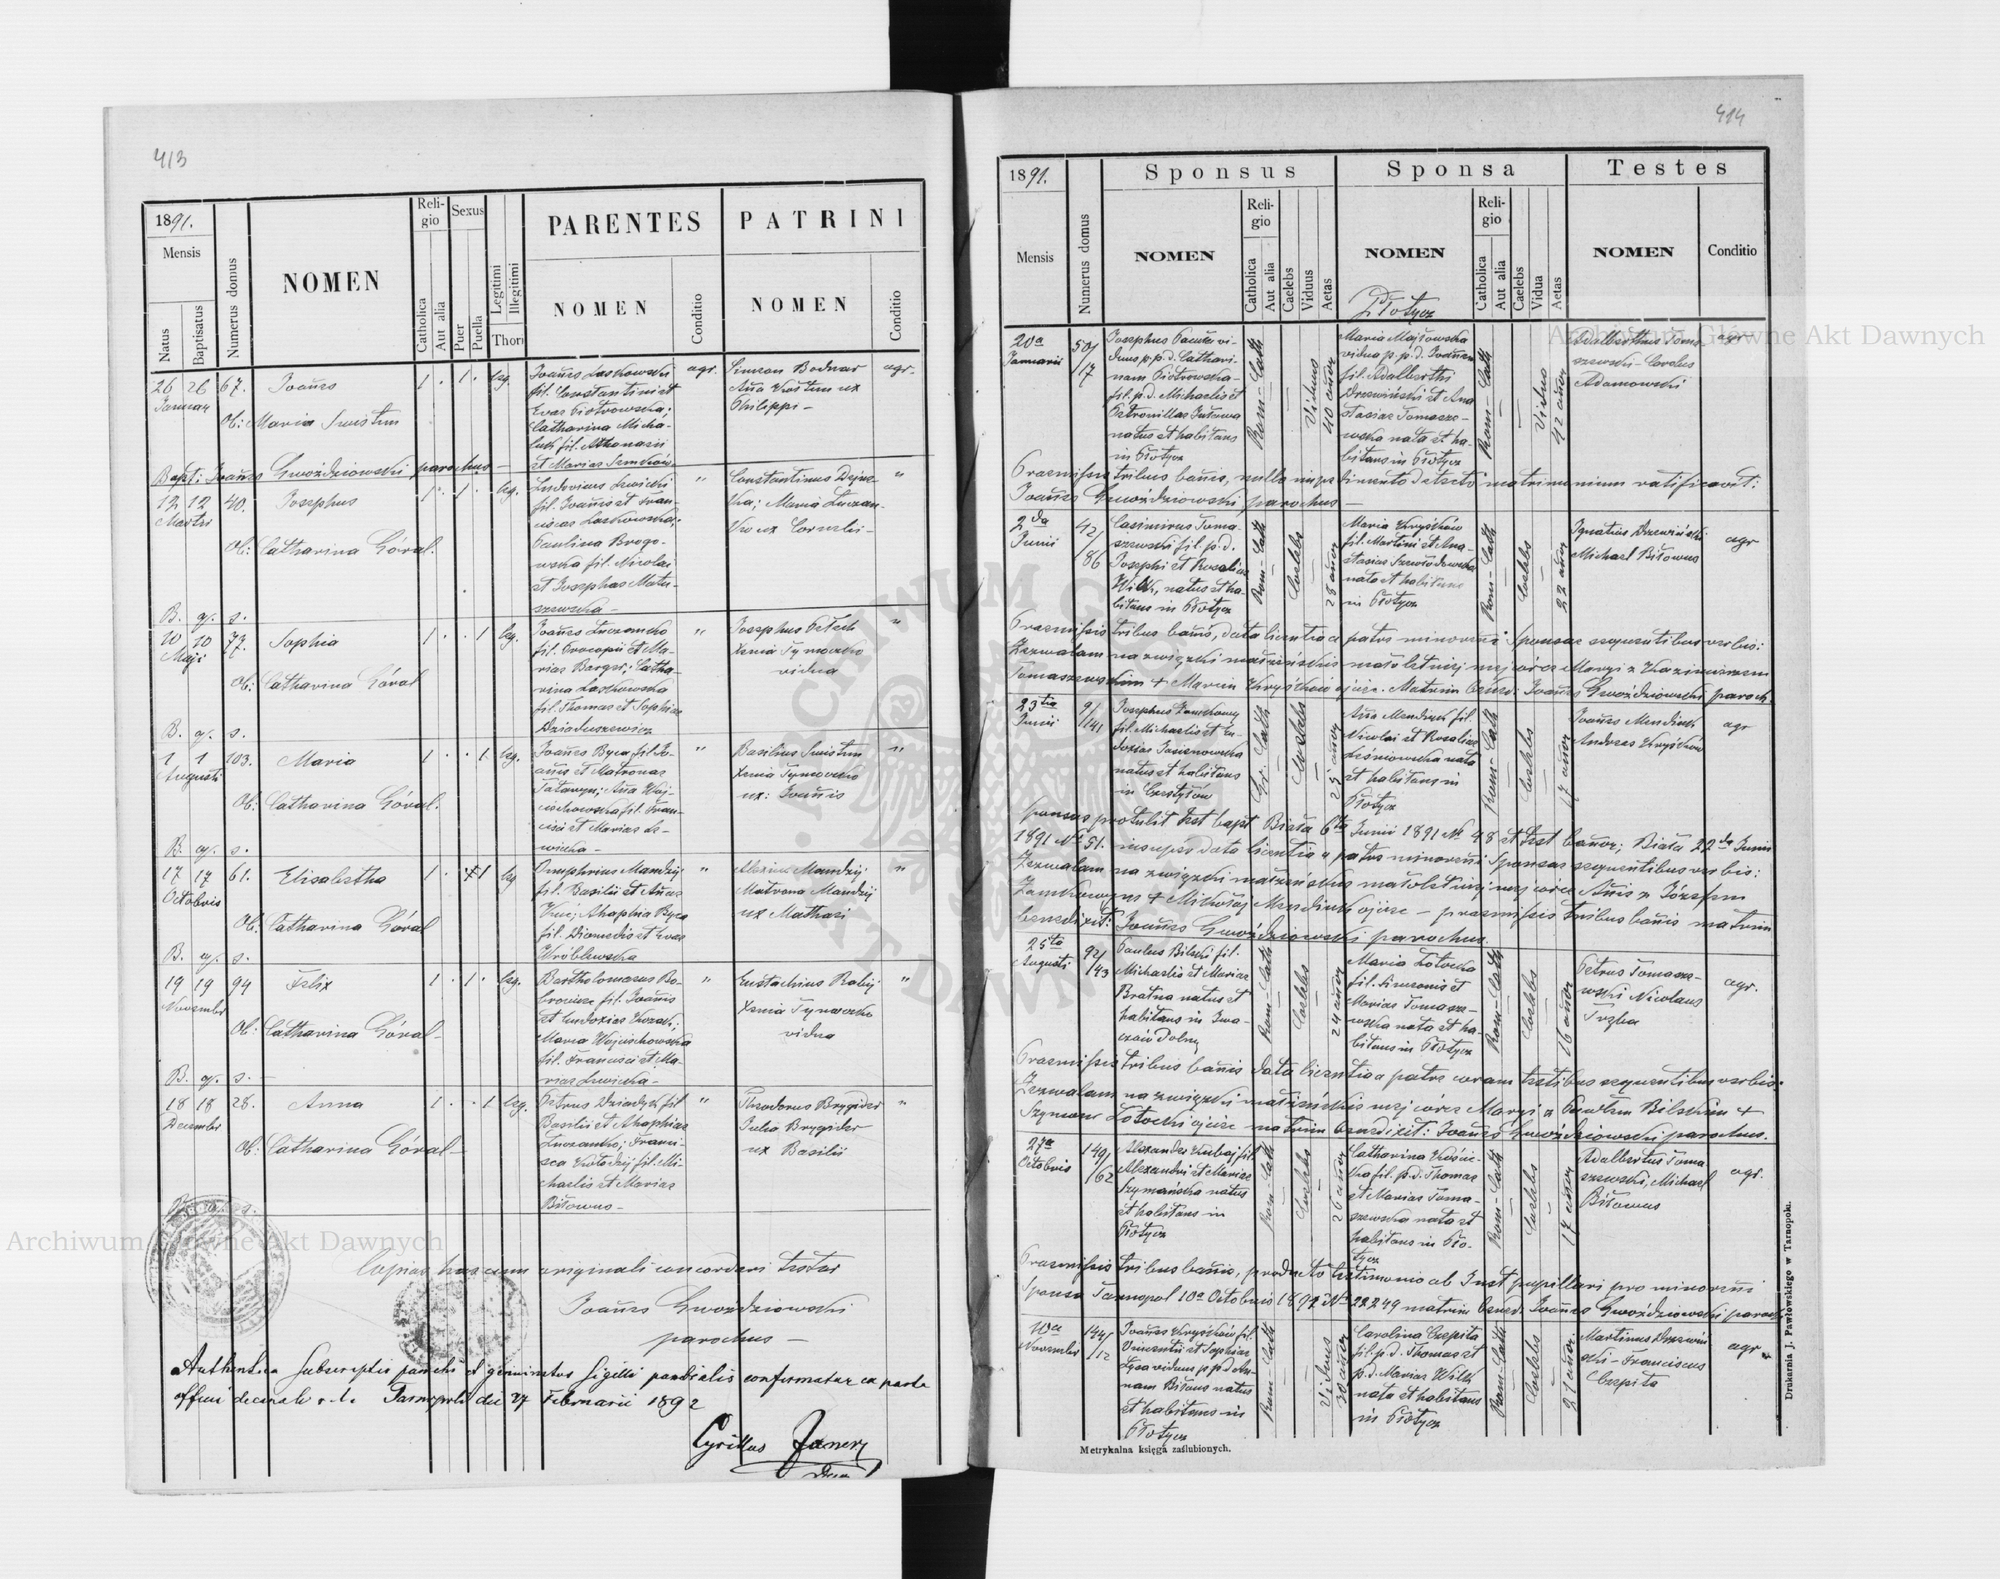 413
1891.
Mensis
Natus
Baptisatus
Numerus domus
NOMEN
Religio
Catholica
Aut alia
Sexus
Puer
Puella
Legitimi
Illegitimi
Thori
PARENTES
NOMEN
Conditio
PATRINI
NOMEN
Conditio
26 26 67. Joañes 1 . 1 . leg.
Januar
Ob: Maria Swistun
Joañes Laskowski
fil. Constantini et
Evae Piotrowska;
Catharina Micha-
fil. Athanasii
et Mariae
agr.
Simeon Bodnar
Aña Kostun ux
Philippi –
agr.
Bapt: Joañes Gwoździowski parochus –
12 12 40. Josephus 1 . 1 . leg.
Martii
Ob: Catharina Góral.
Ludovicus Lewicki
fil. Joañis et Fran-
ciscae Laskowska;
Paulina Brogo-
wska fil. Nicolai
et Josephae Matu-
szewska –
"
Constantinus Dejne-
ka; Maria Luczan-
ko ux Cornelii –
"
B. q. s.
10 10 73. Sophia 1 . . 1 leg.
Maji
Ob: Catharina Góral
Joañes Luczanko
fil. Procopii et Ma-
riae Barger; Catha-
rina Laskowska
fil. Thomae et Sophiae
Dziaduszewicz
"
Josephus Pelech
Xenia Tymoczko
vidua
"
B. q. s.
1 1 103. Maria 1 . . 1 leg.
Augusti
Ob: Catharina Góral.
Joañes Byca fil. Jo-
añis et Matronae
Tataryn; Aña Woj-
ciechowska fil. Fran-
cisci et Mariae Le-
wicka –
"
Basilius Swistun
Xenia Tymoczko
ux: Joañis
"
B. q. s.
17 17 61. Elisabetha 1 . 1 leg
Octobris
Ob: Catharina Góral
Onuphrius Mandzij
fil. Basilii et Añae
Kuc; Ahaphia Byca
fil. Diomedis et Evae
Wróblewska
"
Alexius Mandzij
Matrona Mandzij
ux Mathaei
"
B. q. s.
19 19 94 Felix 1 . 1 . leg.
Novembr
Ob: Catharina Góral –
Bartholomaeus Bo-
fil. Joañis
et Eudoxiae Kozak;
Maria Wojciechowska
fil. Francisci et Ma-
riae Lewicka –
"
Eustachius Rabij
Xenia Tymoczko
vidua
"
B. q. s. –
18 18 28. Anna 1 . . 1 leg.
Decembr
Ob: Catharina Góral –
Petrus Dziadyk fil
Basilii et Ahaphiae
Luczanko; Franci-
sca Kołodzij fil. Mi-
chaelis et Mariae
Bitowus –
"
Theodorus Brygider
Julia Brygider
ux Basilii
"
B. q. s.
Copias has cum originali concordari testor
Joañes Gwoździowski
parochus –
Authentica subscriptio parochi et genuinitas sigilli parochialis confirmatur ex parte
officii decanalis r. l. Tarnopoli die 27 Februarii 1892
Cyrillus
414
1891.
Mensis
Numerus domus
Sponsus
NOMEN
Religio
Catholica
Aut alia
Caelebs
Viduus
Aetas
Sponsa
NOMEN
Płotycz
Religio
Catholica
Aut alia
Caelebs
Vidua
Aetas
Testes
NOMEN
Conditio
20a
Januarii
50/17
Josephus Pacuła vi-
duus p. p. d. Cathari-
nam Piotrowska –
fil. p. d. Michaelis et
Petronillae
natus et habitans
in Płotycz
Rom-Cath
Viduus
40 añor
Maria Majkowska
vidua p. p. d. Joañem
fil. Adalberthi
Drzewiński et Ana
stasiae Tomasze-
wska nata et ha-
bitans in Płotycz
Rom-Cath
Vidua
42 añor
Adalberthus Toma-
szewski – Carolus
Adamowski
agr
Praemissis tribus bañis, nullo impedimento detecto matrimonium ratificavit:
Joañes Gwoździowski parochus –
2da
Junii
42/86
Casimirus Toma-
szewski fil. p. d.
Josephi et Rosaliae
Wilk, natus et ha-
bitans in Płotycz
Rom-Cath
Caelebs
28 añor
Maria Kryśków
fil. Martini et Ana-
stasiae
nata et habitans
in Płotycz
Rom-Cath
Caelebs
22 añor
Ignatius Drzewiński
Michael Bitowus
agr
Praemissis tribus bañis, data licentia a patre minoreñi sponsae sequentibus verbis:
Zezwalam na związki małżeńskie małoletniej mej córce Maryi z Kazimierzem
Tomaszewskim + Marcin Kryśków ojciec. Matrim bened: Joañes Gwoździowski paroch.
23tia
Junii
9/141
Josephus Zamkowy
fil. Michaelis et Eu-
doxiae Jasienowska
natus et habitans
in Czystyłów
Gr. Cath
Caelebs
25 añor
Aña Mendiuk fil.
Nicolai et Rosaliae
Leśniowska nata
et habitans in
Płotycz
Rom-Cath
Caelebs
17 añor
Joañes Mendiuk
Andreas Kryśków
agr
Sponsus protulit test bapt Biała 6ta Junii 1891 No 48 et test bañor; Biała 22da Junii
1891 No 51. insuper data licentia a patre minoreñi sponsae sequentibus verbis:
Zezwalam na związki małżeńskie małoletniej mej córce Añie z Józefem
Zamkowym + Mikołaj Mendiuk ojciec – praemissis tribus bañis matrim
benedixit: Joañes Gwoździowski parochus.
25ta
Augusti
92/43
Paulus Bilski fil.
Michaelis et Mariae
Bratna natus et
habitans in Iwa-
czów Dolny
Rom-Cath
Caelebs
24 añor
Maria Łotocka
fil. Simeonis et
Mariae Tomasze-
wska nata et ha-
bitans in Płotycz
Rom-Cath
Caelebs
16 añor
Petrus Tomasze-
wski Nicolaus
Trzba
agr.
Praemissis tribus bañis data licentia a patre coram testibus sequentibus verbis:
Zezwalam na związki małżeńskie mej córce Maryi z Pawłem Bilskim +
Szymon Łotocki ojciec matrim benedixit: Joañes Gwoździowski parochus.
27a
Octobris
149/62
Alexander Kubaj fil
Alexandri et Mariae
Szymańska natus
et habitans in
Płotycz
Rom-Cath
Caelebs
26 añor
Catharina Kście-
ka fil. p. d. Thomae
et Mariae Toma-
szewska nata et
habitans in Pło-
tycz
Rom-Cath
Caelebs
17 añor
Adalbertus Toma
szewski, Michael
Bitowus
agr.
Praemissis tribus bañis, producto testimonio ab Inst pupillari pro minoreñi
Sponsa Tarnopol 10a Octobris 1891 No 22249 matrim bened. Joañes Gwoździowski paroch
10a
Novembr
144/12
Joañes Kryśków fil.
Vincentii et Sophiae
Łysa viduus p. p. d. An-
nam Bitous natus
et habitans in
Płotycz
Rom-Cath
Viduus
30 añor
Carolina Czepita
fil. p. d. Thomae et
p. d. Mariae Wilk
nata et habitans
in Płotycz
Rom-Cath
Caelebs
21 añor.
Martinus Drzewiń
ski – Franciscus
Czepita
agr
Metrykalna księga zaślubionych.
Drukarnia J. Pawłowskiego w Tarnopolu.
Archiwum Główne Akt Dawnych
Archiwum Główne Akt Dawnych
ARCHIWUM GŁÓWNE AKT DAWNYCH